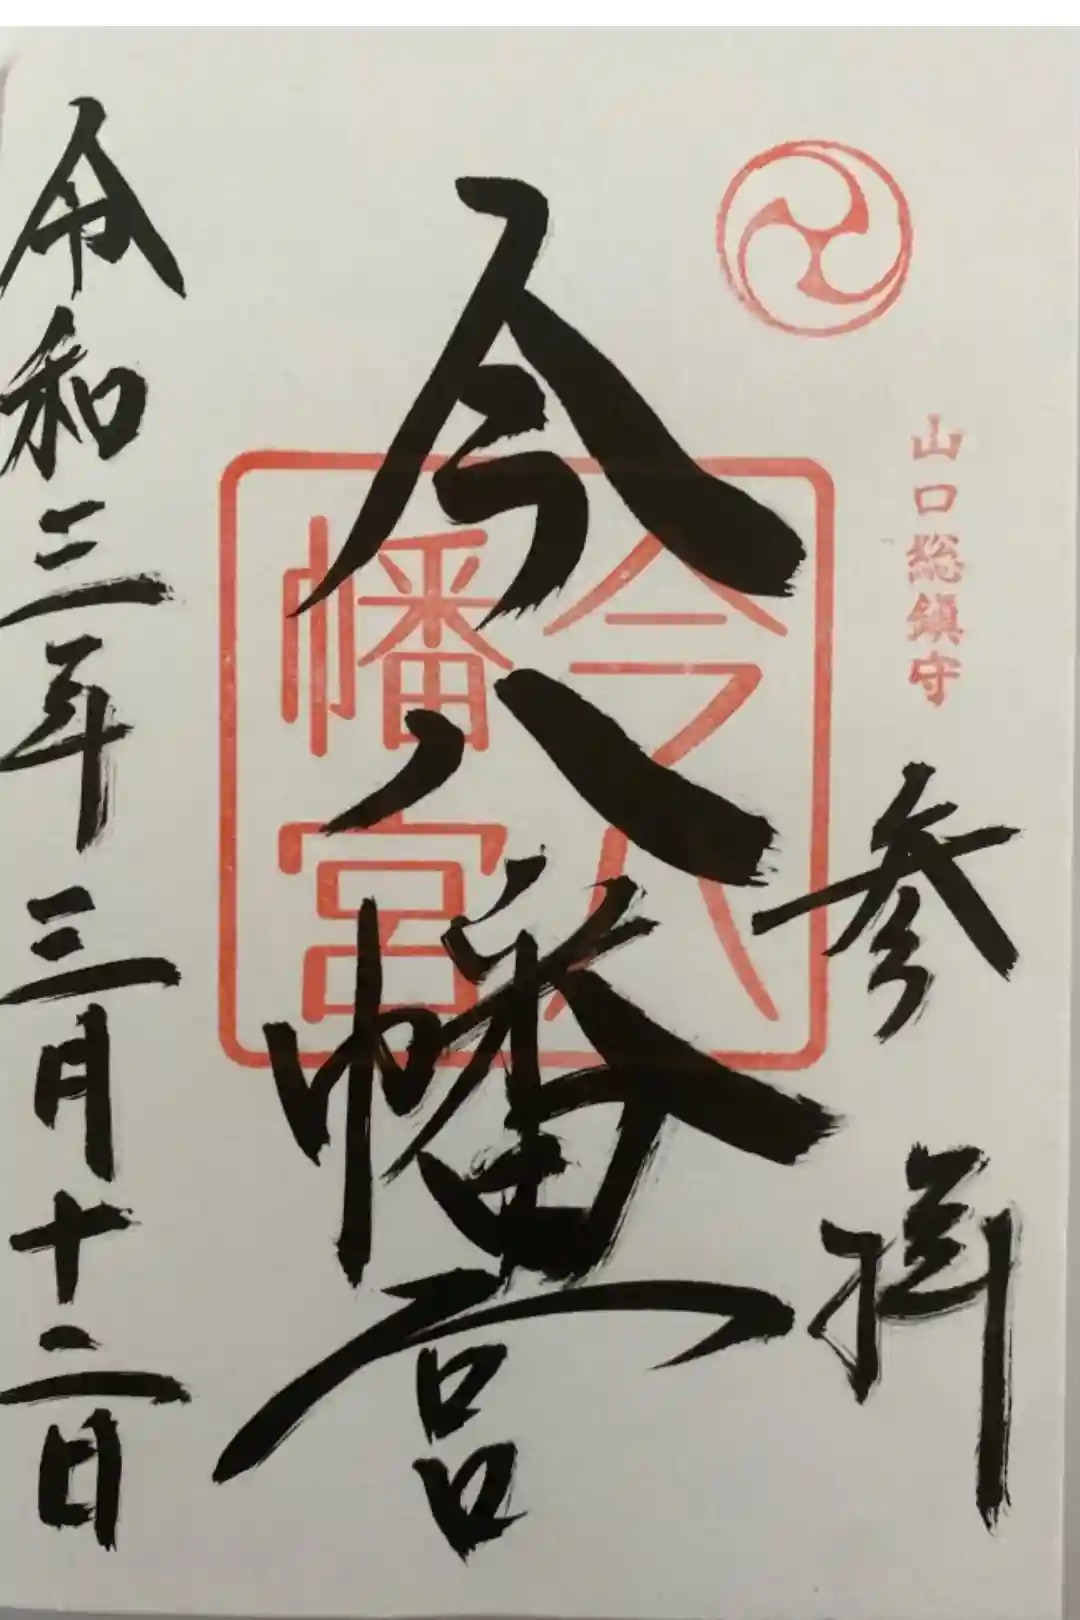 山口総鎮守
参拝
今八幡宮
今八
幡宮
令和三年三月十二日